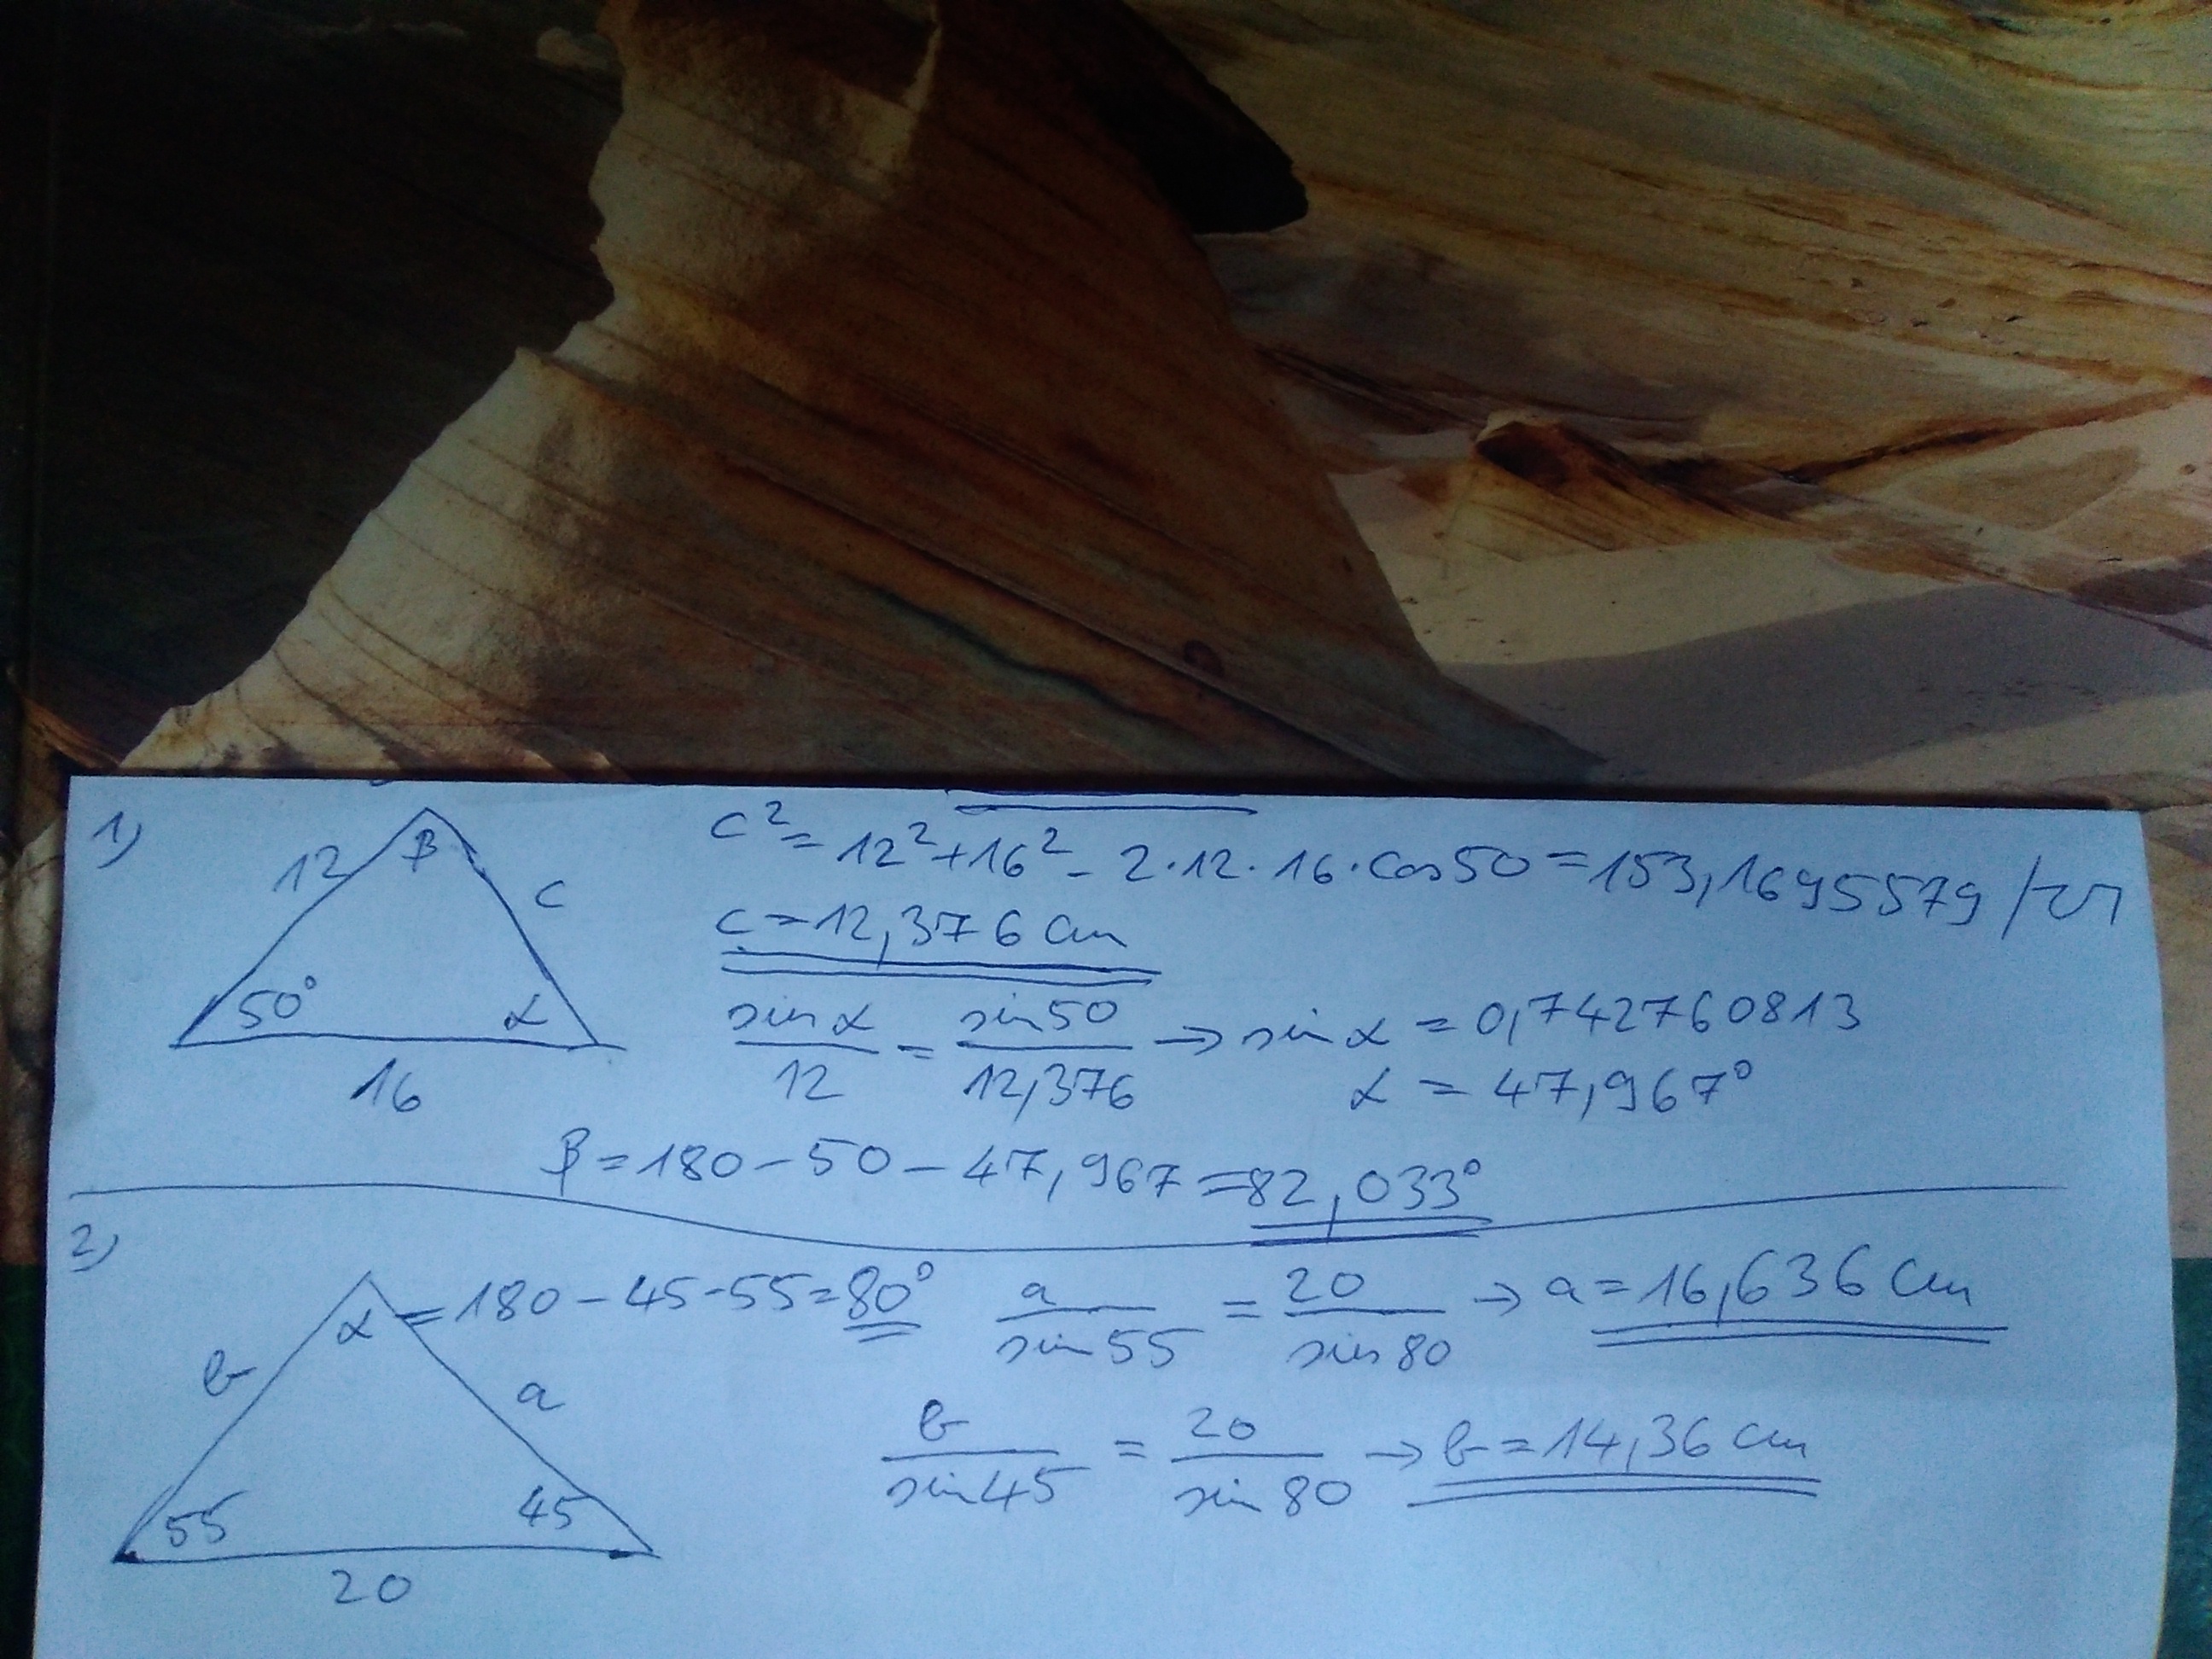 1)
12 β c
50° α
16
c² = 12² + 16² - 2·12·16·cos50 = 153,1695579 /√
c = 12,376 cm
sinα / 12 = sin50 / 12,376 → sinα = 0,742760813
α = 47,967°
β = 180 - 50 - 47,967 = 82,033°
2)
α = 180 - 45 - 55 = 80°
b a
55 45
20
a / sin55 = 20 / sin80 → a = 16,636 cm
b / sin45 = 20 / sin80 → b = 14,36 cm